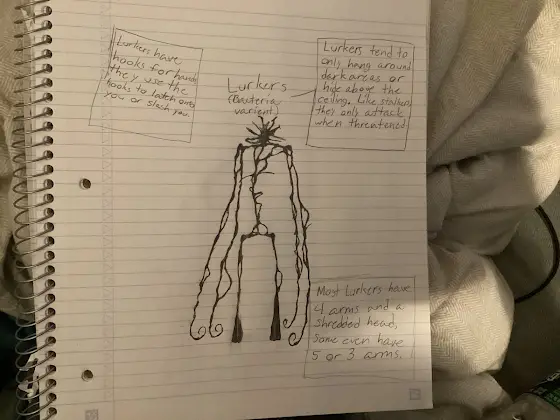 Lurkers have
hooks for hands
they use the
hooks to latch onto
you or slash you.
Lurkers
(Bacteria
varient)
Lurkers tend to
only hang around
dark areas or
hide above the
ceiling. Like stalkers
they only attack
when threatened
Most Lurkers have
4 arms and a
shredded head,
some even have
5 or 3 arms.